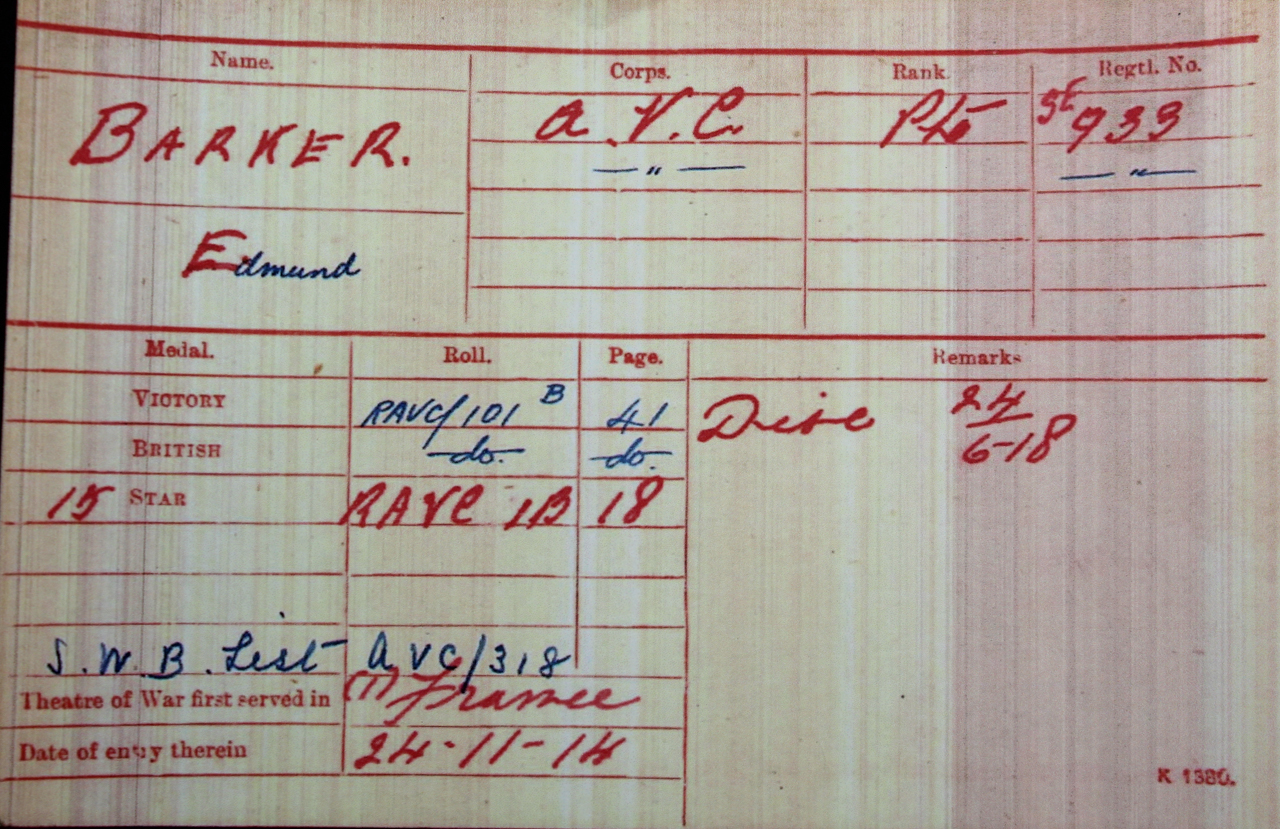 Name. Corps. Rank. Regtl. No.
BARKER. A.V.C. Pte SE 933
— " — — " —
Edmund
Medal. Roll. Page. Remarks
VICTORY RAVC/101 B 41 Disc 24/6-18
BRITISH -do- -do-
15 STAR RAVC 1B 18
S.W.B. List AVC/318
Theatre of War first served in (1) France
Date of entry therein 24-11-14
K 1380.